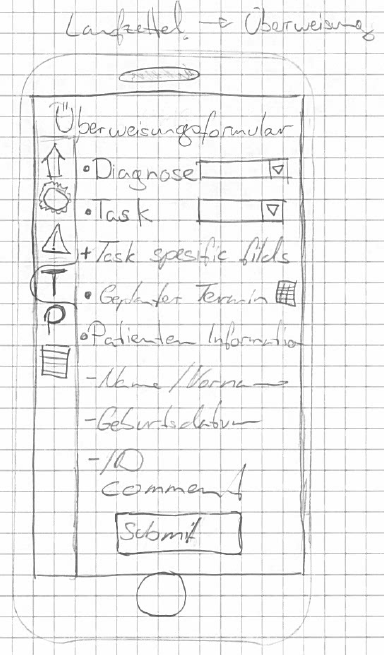 Laufzettel → Überweisung
Überweisungsformular
• Diagnose
• Task
+ Task spesific filds
T
• Geplanter Termin
P
• Patienten Information
- Name / Vorname
- Geburtsdatum
- ID
comment
Submit